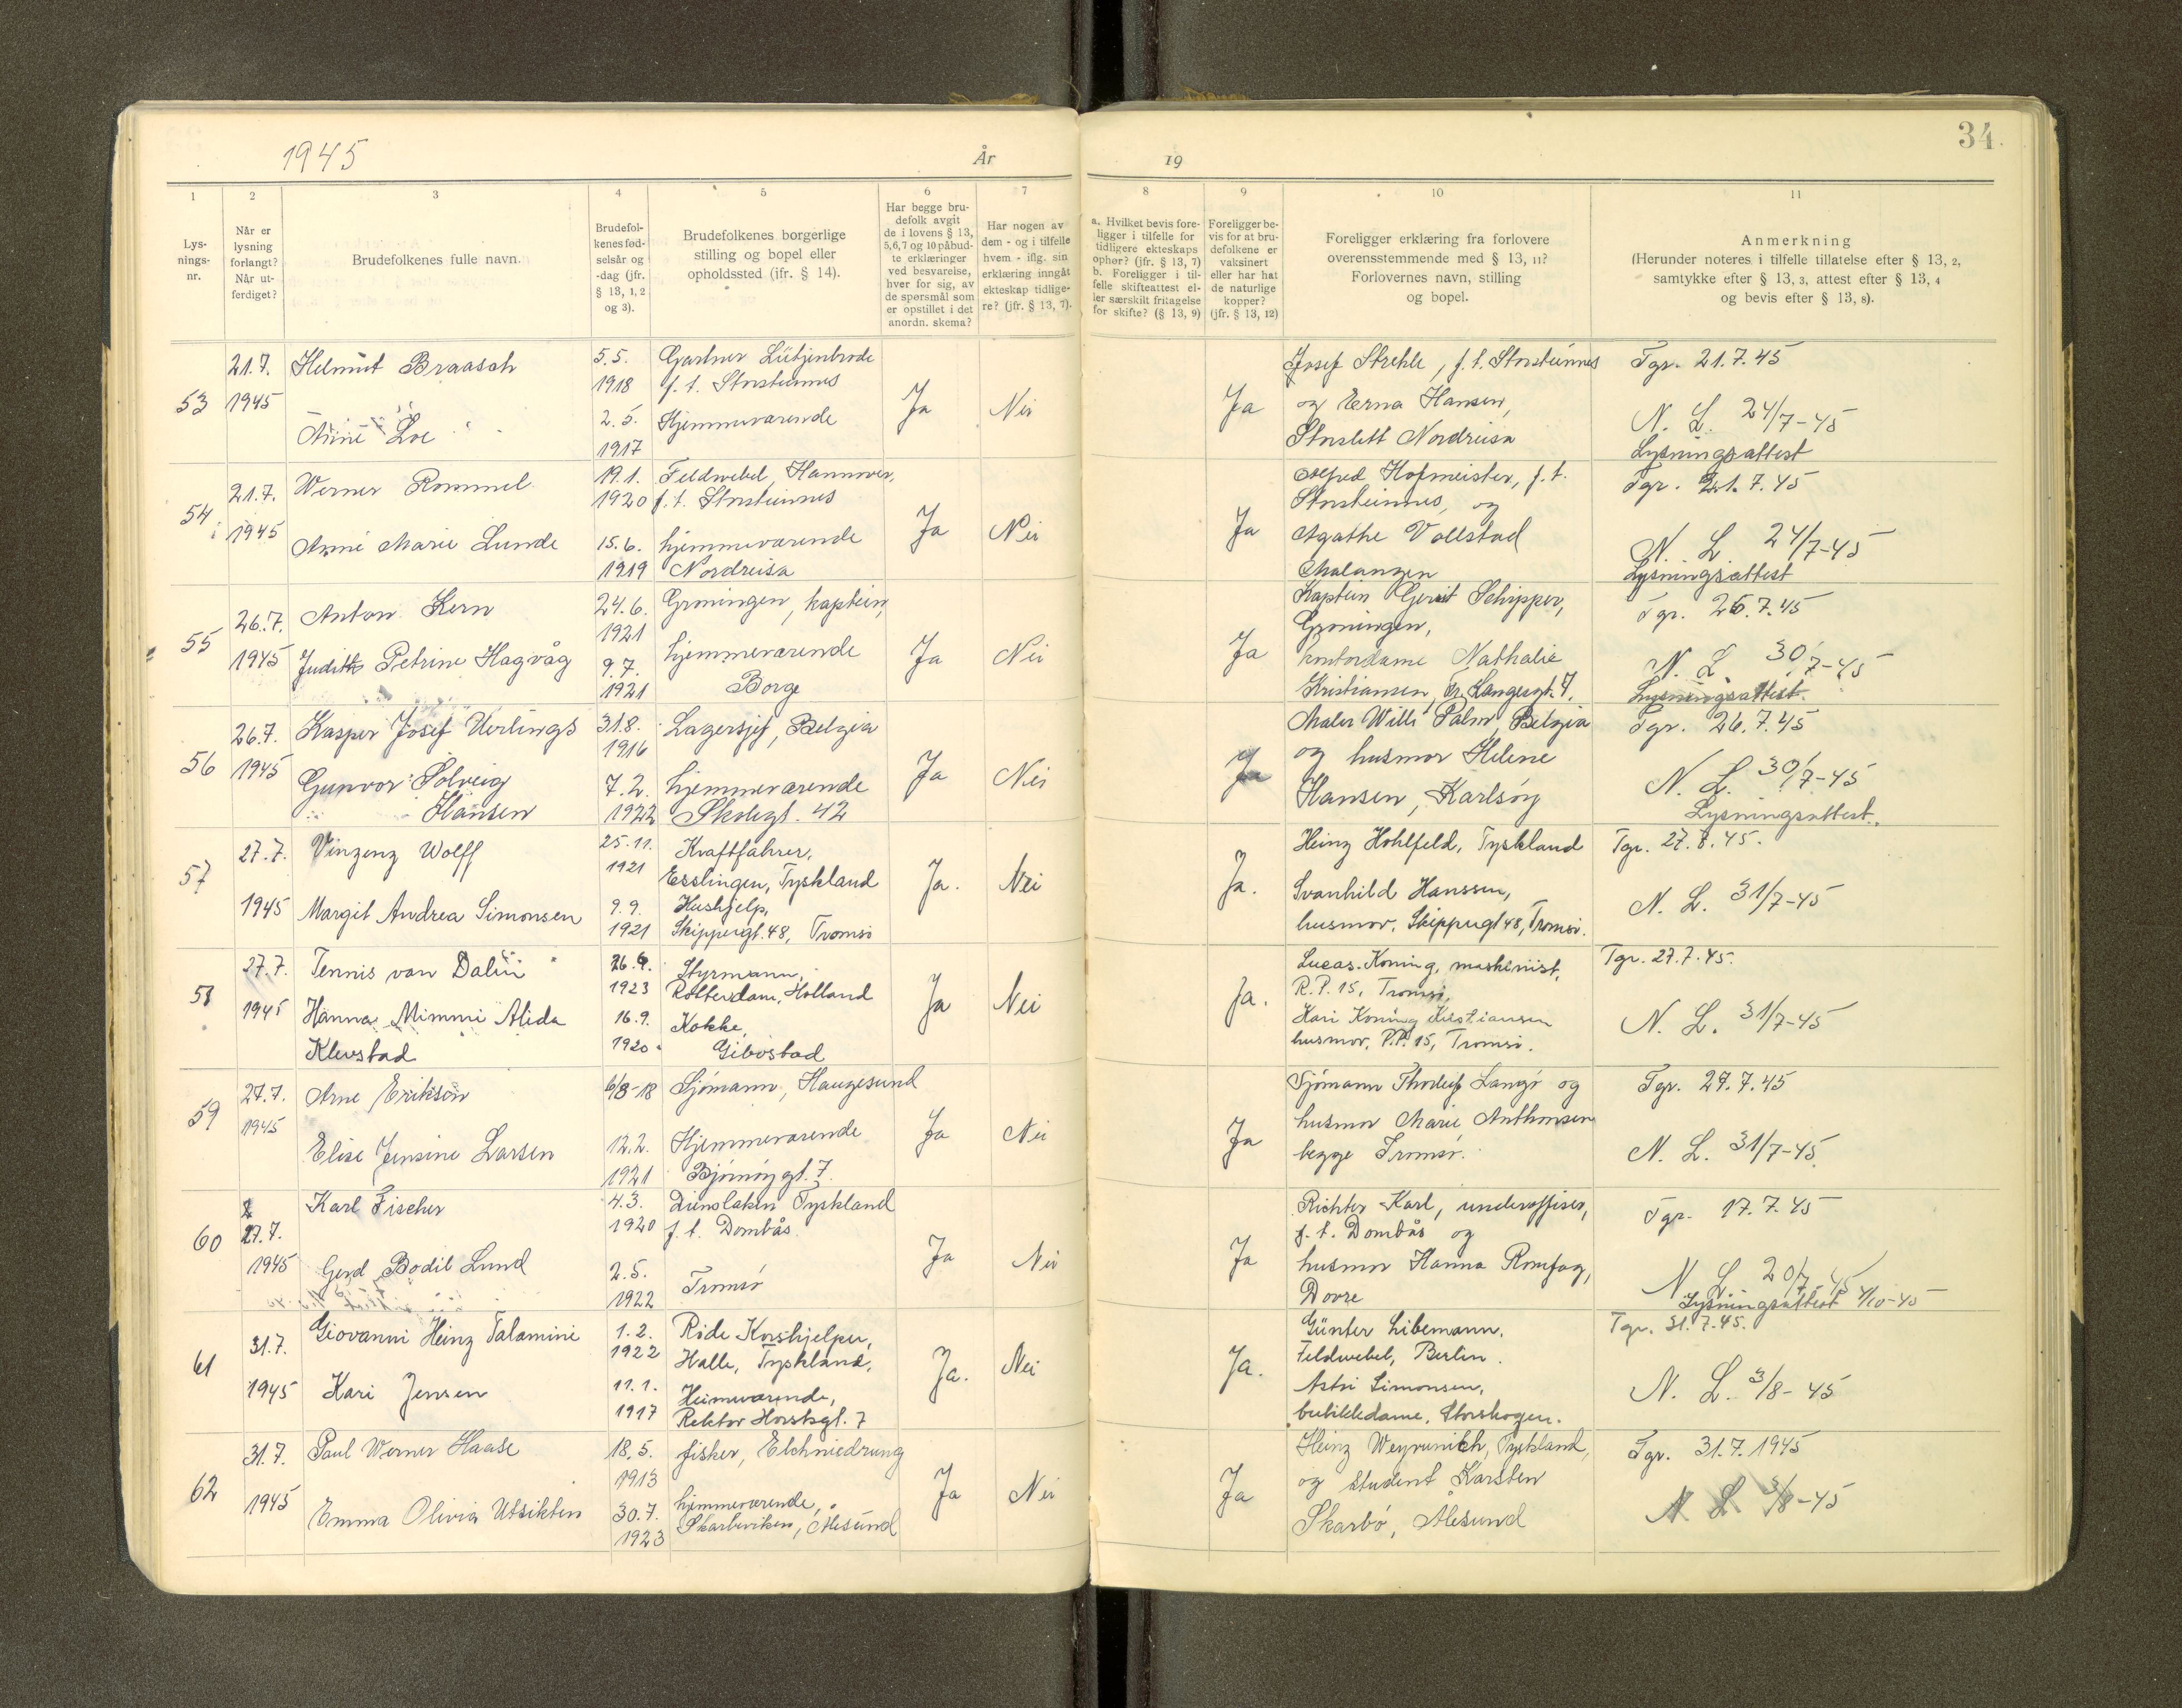 34
1945
År
19
1
2
3
4
5
6
7
8
9
10
11
Lys-
nings-
nr.
Når er
lysning
forlangt?
Når ut-
ferdiget?
Brudefolkenes fulle navn.
Brudefol-
kenes fød-
selsår og
-dag (jfr.
§ 13, 1, 2
og 3).
Brudefolkenes borgerlige
stilling og bopel eller
opholdssted (ifr. § 14).
Har begge bru-
defolk avgit
de i lovens § 13,
5,6,7 og 10 påbud-
te erklæringer
ved besvarelse,
hver for sig, av
de spørsmål som
er opstillet i det
anordn. skema?
Har nogen av
dem - og i tilfelle
hvem - iflg. sin
erklæring inngått
ekteskap tidlige-
re? (jfr. § 13, 7).
a. Hvilket bevis fore-
ligger i tilfelle for
tidligere ekteskaps
ophør? (jfr. § 13, 7)
b. Foreligger i til-
felle skifteattest el-
ler særskilt fritagelse
for skifte? (§ 13, 9)
Foreligger be-
vis for at bru-
defolkene er
vaksinert
eller har hat
de naturlige
kopper?
(jfr. § 13, 12)
Foreligger erklæring fra forlovere
overensstemmende med § 13, 11?
Forlovernes navn, stilling
og bopel.
Anmerkning
(Herunder noteres i tilfelle tillatelse efter § 13, 2,
samtykke efter § 13, 3, attest efter § 13, 4
og bevis efter § 13, 8).
53
21.7.
1945
Helmut Braasch
Anne Loe
5.5.
1918
2.5.
1917
Gartner Lütjenbrode
f.t. Storsteinnes
Hjemmeværende
Ja
Nei
Ja
Josef Strehle, f.t. Storsteinnes
og Erna Hansen,
Storslett Nordreisa
Tgr. 21.7.45
N. L. 24/7-45
Lysningsattest
54
21.7.
1945
Werner Rommel
Anne Marie Lunde
19.1.
1920
15.6.
1919
Feldwebel, Hannover,
f.t. Storsteinnes
hjemmeværende
Nordreisa
Ja
Nei
Ja
Alfred Hofmeister, f.t.
Storsteinnes, og
Agathe Vollstad
Malangen
Tgr. 21.7.45
N. L. 24/7-45
Lysningsattest
55
26.7.
1945
Anton Kern
Judith Petrine Hagvåg
24.6.
1921
9.7.
1921
Groningen, kaptein,
hjemmeværende
Borge
Ja
Nei
Ja
Kaptein Gerrit Schipper,
Groningen,
kontordame Nathalie
Kristiansen, Fr. Langesgt. 7.
Tgr. 26.7.45
N. L. 30/7-45
Lysningsattest.
56
26.7.
1945
Kasper Josef Uerlings
Gunvor Solveig
Hansen
31.8.
1916
7.2.
1922
Lagersjef, Belgia
hjemmeværende
Skolegt. 42
Ja
Nei
Ja
Maler Willi Palm, Belgia
og husmor Helene
Hansen, Karlsøy
Tgr. 26.7.45
N. L. 30/7-45
Lysningsattest.
57
27.7.
1945
Vinzenz Wolff
Margit Andrea Simonsen
25.11.
1921
9.9.
1921
Kraftfahrer,
Esslingen, Tyskland
Hushjelp,
Skippergt. 48, Tromsø
Ja.
Nei
Ja.
Heinz Hohlfeld, Tyskland
Svanhild Hanssen,
husmor, Skippergt 48, Tromsø.
Tgr. 27.7.45.
N. L. 31/7-45
58
27.7.
1945
Tennis van Dalin
Hanna Mimmi Alida
Klevstad
26.9.
1923
16.9.
1920
Styrmann,
Rotterdam, Holland
Kokke,
Gibostad
Ja
Nei
Ja.
Lucas Koning, maskinist,
R.P. 15, Tromsø,
Kari Koning Kristiansen
husmor, P.P. 15, Tromsø.
Tgr. 27.7.45.
N. L. 31/7-45
59
27.7.
1945
Arne Erikson
Elise Jensine Larsen
6/8-18
12.2.
1921
Sjømann, Haugesund
Hjemmeværende
Bjørnøygt. 7
Ja
Nei
Ja
Sjømann Thorleif Langø og
husmor Marie Anthonsen
begge Tromsø.
Tgr. 27.7.45
N. L. 31/7-45
60
17.7.
1945
Karl Fischer
Gerd Bodil Lund
4.3.
1920
2.5.
1922
Dinslaken Tyskland
f.t. Dombås
Tromsø
Ja
Nei
Ja
Richter Karl, underoffiser,
f.t. Dombås og
husmor Hanna Romfog,
Dovre
Tgr. 17.7.45
N. L. 20/7-45
Lysningsattest 4/10-45
61
31.7.
1945
Giovanni Heinz Talamini
Kari Jensen
1.2.
1922
11.1.
1917
Røde Korshjelper,
Halle, Tyskland,
Heimeværende,
Rektor Horstsgt. 7
Ja.
Nei
Ja.
Günter Libemann,
Feldwebel, Berlin.
Astri Simonsen,
butikkdame, Storskogen.
Tgr. 31.7.45.
N. L. 3/8-45
62
31.7.
1945
Paul Werner Haase
Emma Olivia Utsikten
18.5.
1913
30.7.
1923
fisker, Elchniedrung
hjemmeværende,
Skarbøviken, Ålesund
Ja
Nei
Ja
Heinz Weyrunich, Tyskland,
og student Karsten
Skarbø, Ålesund
Tgr. 31.7.1945
N L 3/8-45